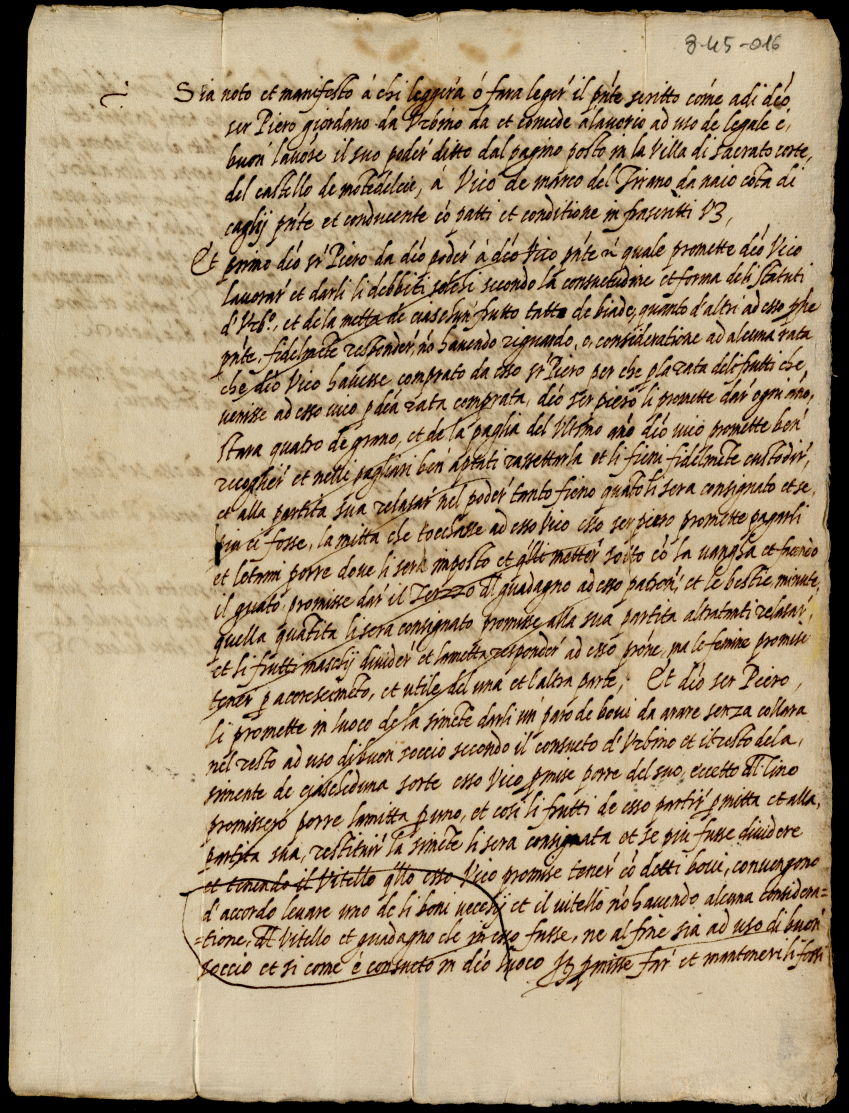 8-45-016
Sia noto et manifesto á chi leggerá ó fara leger' il pn'te scritto cóme adi déo
ser Piero giordano da Vrbino da et concede a lauorio ad uso de legale é,
buon' lauóre il suo poder' ditto dal pagino posto in la Villa di sacrato corte,
del castello de mōtedelcie, á Vico de márco del Tirano da naio cōta di
caglij pn'te et conducente có patti et conditione in frascritti V3,
Et primo déo sr' Piero da déo podér á déo Vico pn'te il quale promette déo Vico
lauorar' et darli li debbiti solchi secondo la consuetudine et forma deli statuti
d'Vrb.º, et de la metta de ciaschun' frutto tatto de biade, quanto d'altri ad esso
pn'te, fidelmēte respónder, nō hauendo riguardo, o, consideratione ad alcuna rata
che déo Vico hauesse comprato da esso sr' Piero per che p la rata deli frutti che,
venisse ad esso uico p déa rata comprata, déo ser piero li promette dar' ogni ano,
stara quatro de grano, et de la paglia del Vltimo ano déo uico promette ben'
recoglier' et nelli pagliari ben' aptati rassettarla et li fieni fidelmēte custodir',
et alla partita sua relasar' nel poder' tanto fieno quāto li sera consignato et se,
piu ci fosse, la mitta che tocchasse ad esso Vico esso ser piero promette pagarli
et letami porre doue li sera imposto et qlli metter' sotto có la vangha et facendo
il guato promisse dar' il Terzzo dl guadagno ad esso patron', et le bestie minute,
quella quātita li sera consignato promisse alla sua partita altratanti relasar',
et li frutti maschij divider' et la metta responder' ad esso pròne, ma le femine promise
tener p acorescimēto, et utile del una et l'altra parte, Et déo ser Piero,
li promette in luoco de la simēte darli un' paro de boui da arare senza collara
nel resto ad uso di buon soccio secondo il consueto d'Vrbino et il resto de la,
simente de ciascheduna sorte esso Vico pmise porre del suo, eccetto dl lino
promissero porre la mitta p uno, et così li frutti de esso partir' p mitta et alla,
partita sua, restituir' la simēte li sera consignata et se piu fusse dividere
et tenendo il Vitello qllo esso Vico promise tener' có detti boui, conuengono
d'accordo leuare uno de li boui uecchi et il uitello nō hauendo alcuna considera=
=tione, dl Vitello et guadagno che in esso fusse, ne al fine sia ad uso di buon'
soccio et si come é consueto in déo luoco pmisse far' et mantoneri li fossi